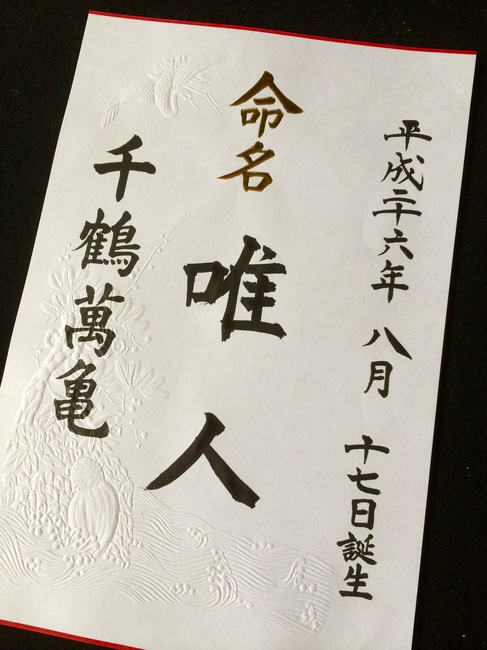 平成二十六年 八月 十七日誕生
命名
唯人
千鶴萬亀